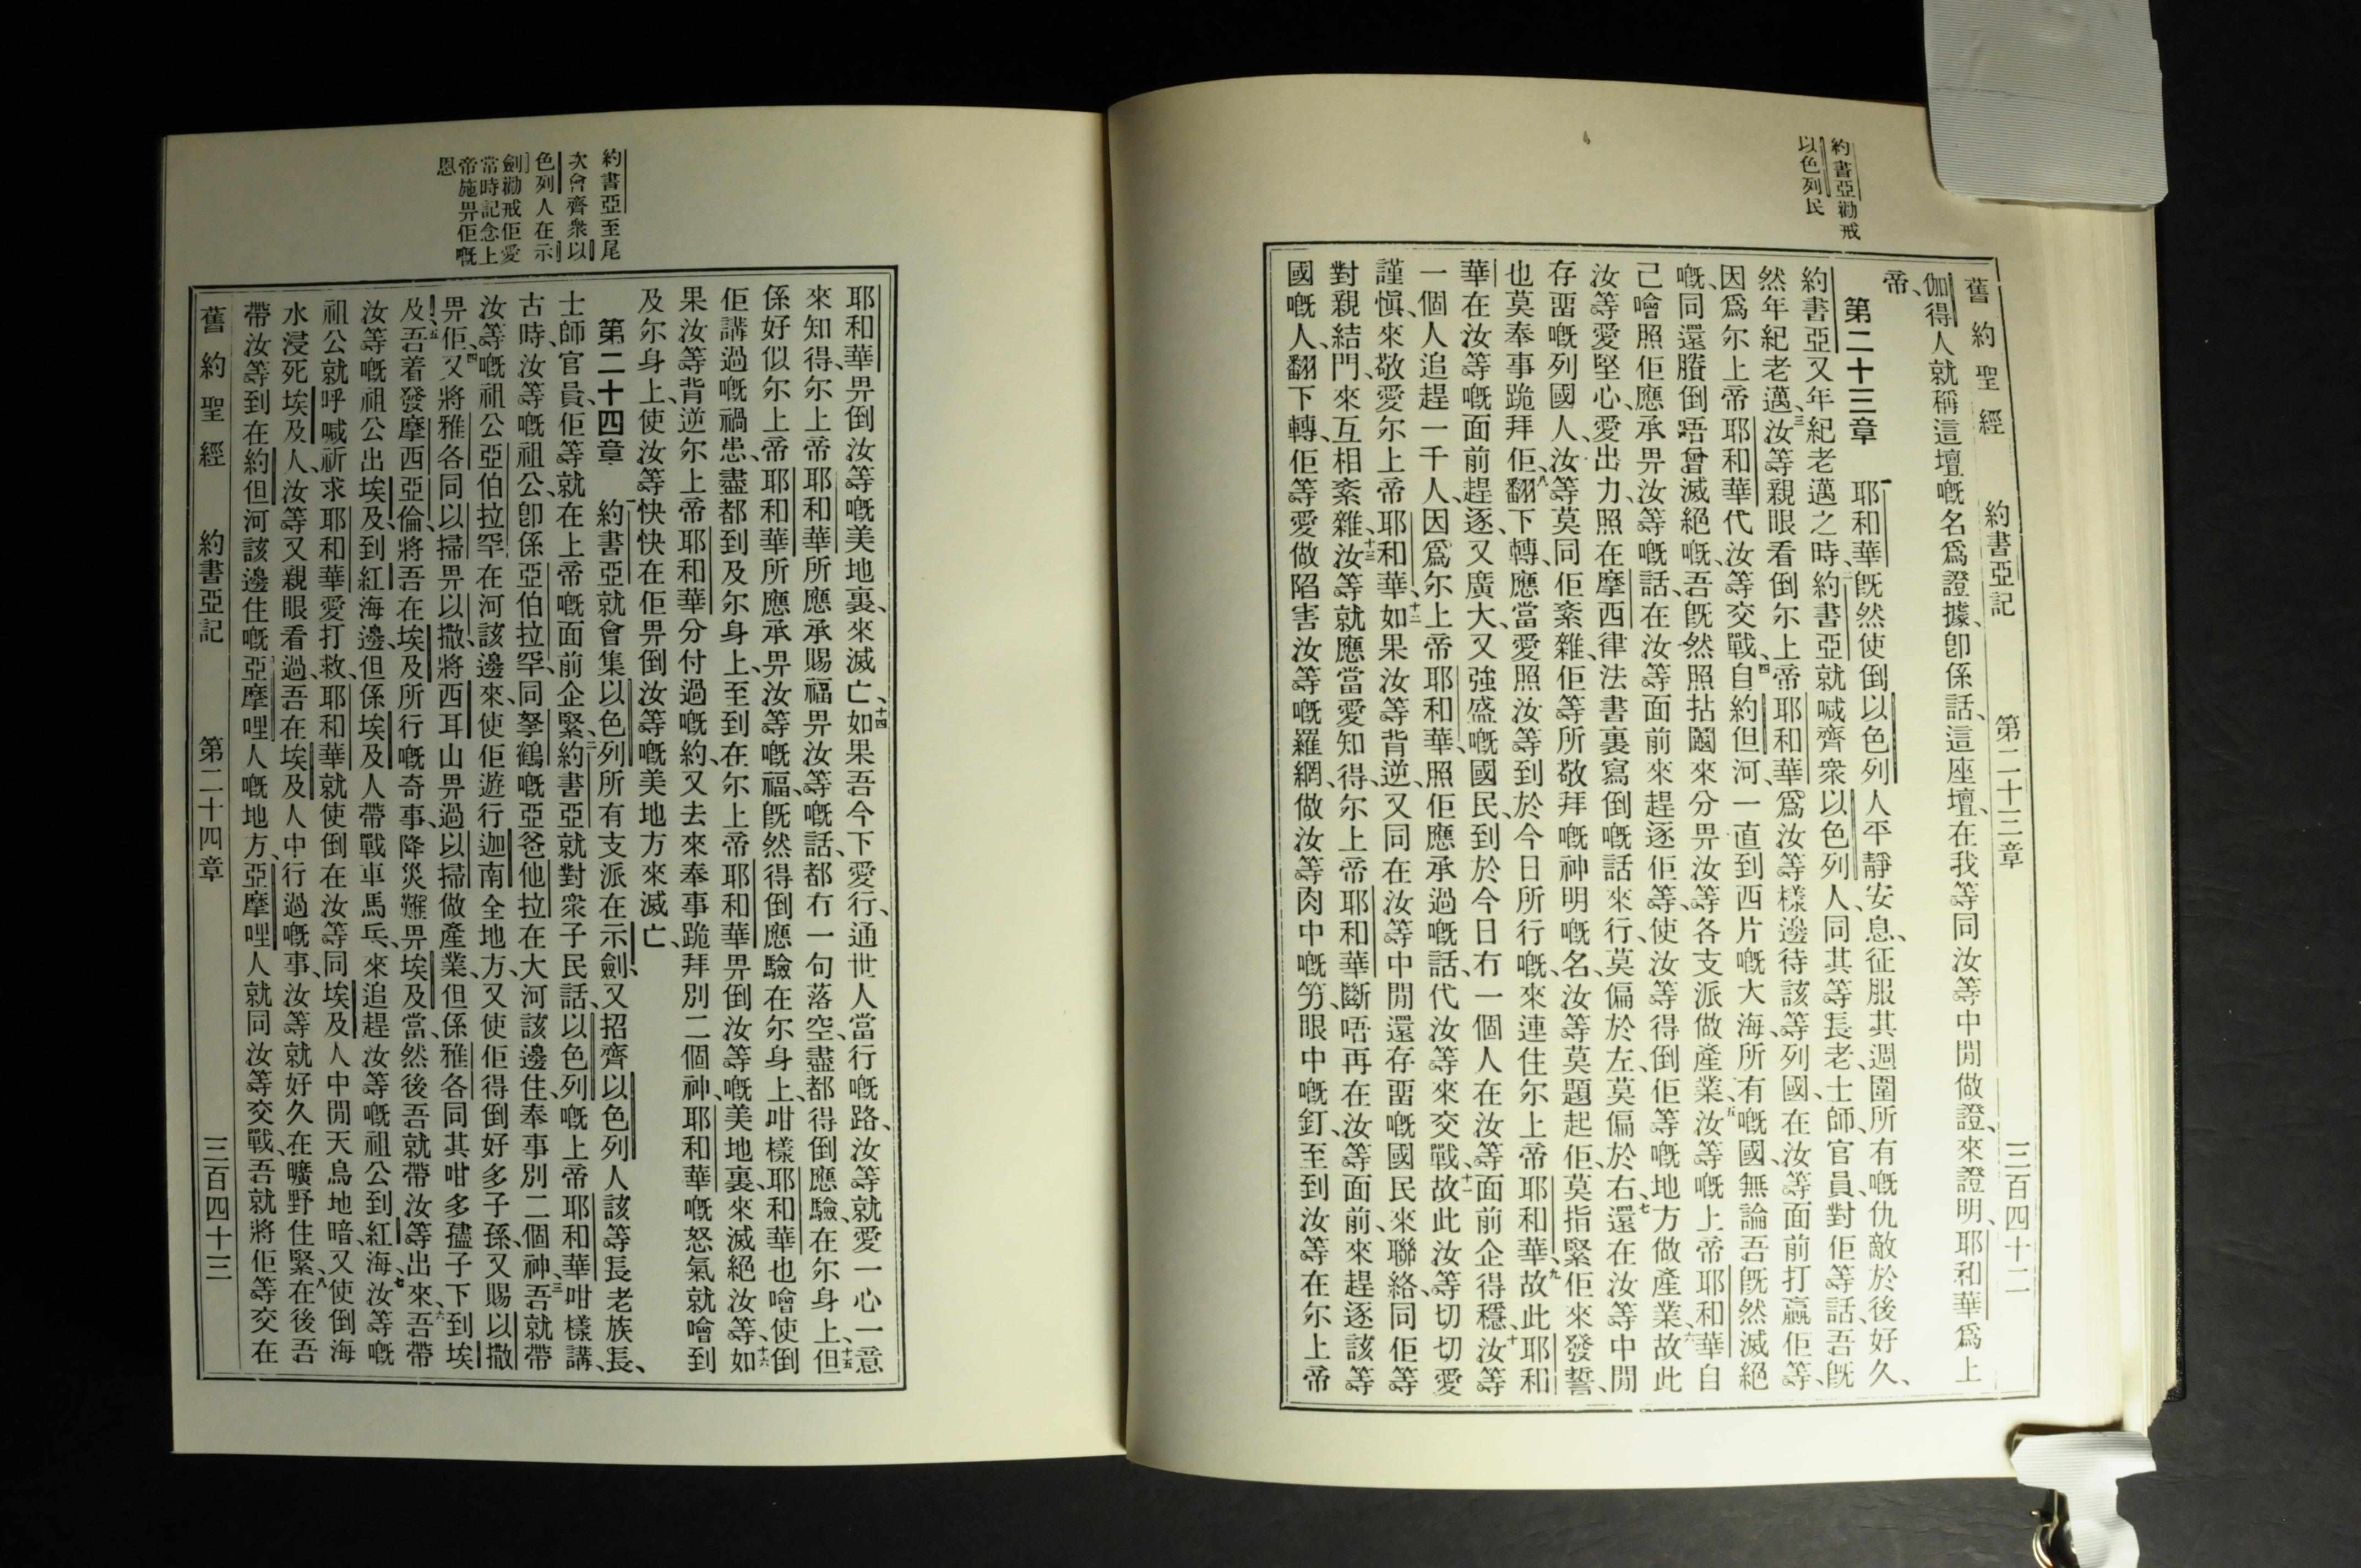 約書亞勸戒
以色列民
舊約聖經 約書亞記 第二十三章 三百四十二
伽得人就稱這壇嘅名爲證據、卽係話、這座壇、在我等同汝等中閒做證、來證明、耶和華爲上
帝、
第二十三章 一耶和華旣然使倒以色列人平靜安息、征服其週圍所有嘅仇敵於後好久、
約書亞又年紀老邁之時、二約書亞就喊齊衆以色列人、同其等長老、士師、官員、對佢等話、吾旣
然年紀老邁、三汝等親眼看倒尔上帝耶和華爲汝等樣邊待該等列國、在汝等面前打贏佢等、
因爲尔上帝耶和華代汝等交戰、四自約但河、一直到西片嘅大海、所有嘅國、無論吾旣然滅絕
嘅、同還賸倒唔曾滅絕嘅、吾旣然照拈鬮來分畀汝等各支派做產業、五汝等嘅上帝耶和華自
己噲照佢應承畀汝等嘅話、在汝等面前來趕逐佢等、使汝等得倒佢等嘅地方做產業、六故此
汝等愛堅心、愛出力、照在摩西律法書裏寫倒嘅話來行、莫偏於左、莫偏於右、七還在汝等中閒
存畱嘅列國人、汝等莫同佢紊雜、佢等所敬拜嘅神明嘅名、汝等莫題起佢、莫指緊佢來發誓、
也莫奉事跪拜佢、八翻下轉、應當愛照汝等到於今日所行嘅、來連住尔上帝耶和華、九故此耶和
華在汝等嘅面前趕逐、又廣大、又強盛嘅國民、到於今日冇一個人在汝等面前企得穩、十汝等
一個人追趕一千人、因爲尔上帝耶和華、照佢應承過嘅話、代汝等來交戰、十一故此汝等切切愛
謹愼、來敬愛尔上帝耶和華、十二如果汝等背逆、又同在汝等中閒還存畱嘅國民來聯絡、同佢等
對親結門、來互相紊雜、十三汝等就應當愛知得、尔上帝耶和華斷唔再在汝等面前、來趕逐該等
國嘅人、翻下轉、佢等愛做陷害汝等嘅羅網、做汝等肉中嘅竻、眼中嘅釘、至到汝等在尔上帝
約書亞至尾
次會齊衆以
色列人在示
劍勸戒佢愛
常時記念上
帝施畀佢嘅
恩
耶和華畀倒汝等嘅美地裏、來滅亡、十四如果吾今下愛行、通世人當行嘅路、汝等就愛一心一意
來知得、尔上帝耶和華所應承賜福畀汝等嘅話、都冇一句落空、盡都得倒應驗、在尔身上、十五但
係好似尔上帝耶和華所應承畀汝等嘅福、旣然得倒應驗在尔身上、咁樣耶和華也噲使倒
佢講過嘅禍患、盡都到及尔身上、至到在尔上帝耶和華畀倒汝等嘅美地裏、來滅絕汝等、十六如
果汝等背逆尔上帝耶和華分付過嘅約、又去來奉事跪拜別二個神、耶和華嘅怒氣就噲到
及尔身上、使汝等快快在佢畀倒汝等嘅美地方來滅亡、
第二十四章 一約書亞就會集以色列所有支派在示劍、又招齊以色列人該等長老族長、
士師官員、佢等就在上帝嘅面前企緊、二約書亞就對衆子民話、以色列嘅上帝耶和華咁樣講、
古時、汝等嘅祖公、卽係亞伯拉罕、同拏鶴嘅亞爸他拉、在大河該邊住、奉事別二個神、三吾就帶
汝等嘅祖公亞伯拉罕在河該邊來、使佢遊行迦南全地方、又使佢得倒好多子孫、又賜以撒
畀佢、四又將雅各同以掃畀以撒、將西耳山畀過以掃做產業、但係雅各同其咁多孻子下到埃
及、五吾着發摩西亞倫、將吾在埃及所行嘅奇事、降災難畀埃及當、然後吾就帶汝等出來、六吾帶
汝等嘅祖公出埃及、到紅海邊、但係埃及人帶戰車馬兵、來追趕汝等嘅祖公到紅海、七汝等嘅
祖公就呼喊祈求耶和華愛打救、耶和華就使倒在汝等同埃及人中閒天烏地暗、又使倒海
水浸死埃及人、汝等又親眼看過、吾在埃及人中行過嘅事、汝等就好久在曠野住緊、八在後吾
帶汝等到在約但河該邊住嘅亞摩哩人嘅地方、亞摩哩人就同汝等交戰、吾就將佢等交在
舊約聖經 約書亞記 第二十四章 三百四十三